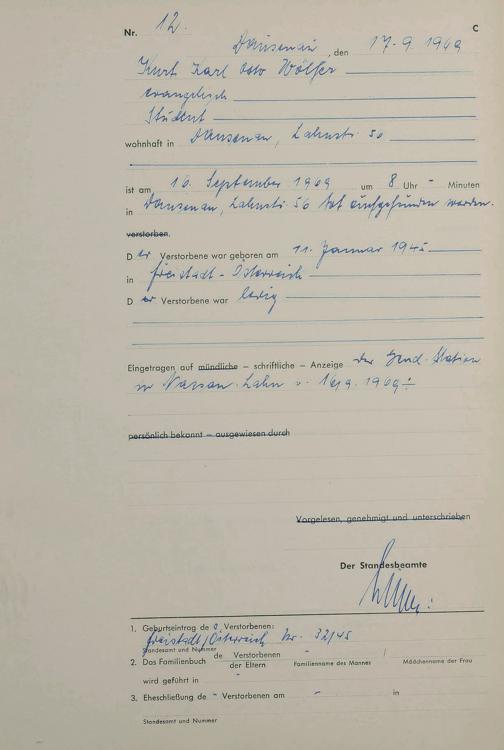 Nr. 12. C
Dausenau, den 17.9 1969
Kurt Karl Otto Wölfer
evangelisch
Student
wohnhaft in Dausenau, Lahnstr. 56
ist am 16. September 1969 um 8 Uhr - Minuten
in Dausenau, Lahnstr. 56 tot aufgefunden worden.
verstorben.
D er Verstorbene war geboren am 11. Januar 1945
in Freistadt - Österreich
D er Verstorbene war ledig
Eingetragen auf mündliche – schriftliche – Anzeige der Gend. Station
in Nassau-Lahn v. 16.9.1969
persönlich bekannt – ausgewiesen durch
Vorgelesen, genehmigt und unterschrieben
Der Standesbeamte
1. Geburtseintrag des Verstorbenen:
Freistadt/Österreich Nr. 32/45
Standesamt und Nummer
2. Das Familienbuch de Verstorbenen - /
der Eltern Familienname des Mannes Mädchenname der Frau
wird geführt in -
3. Eheschließung de - Verstorbenen am - in
Standesamt und Nummer